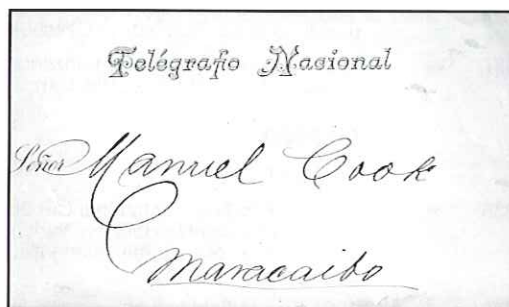 Telégrafo Nacional
Señor Manuel Cook
Maracaibo